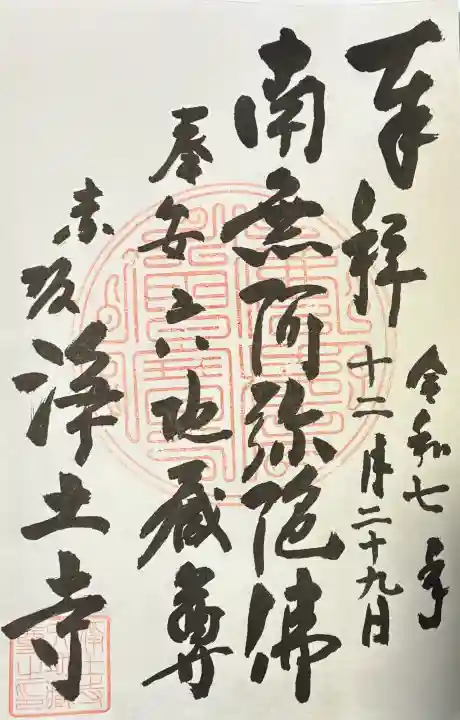 奉拝
令和七年
十二月二十九日
南無阿弥陀佛
奉安六地蔵尊
赤坂
浄土寺